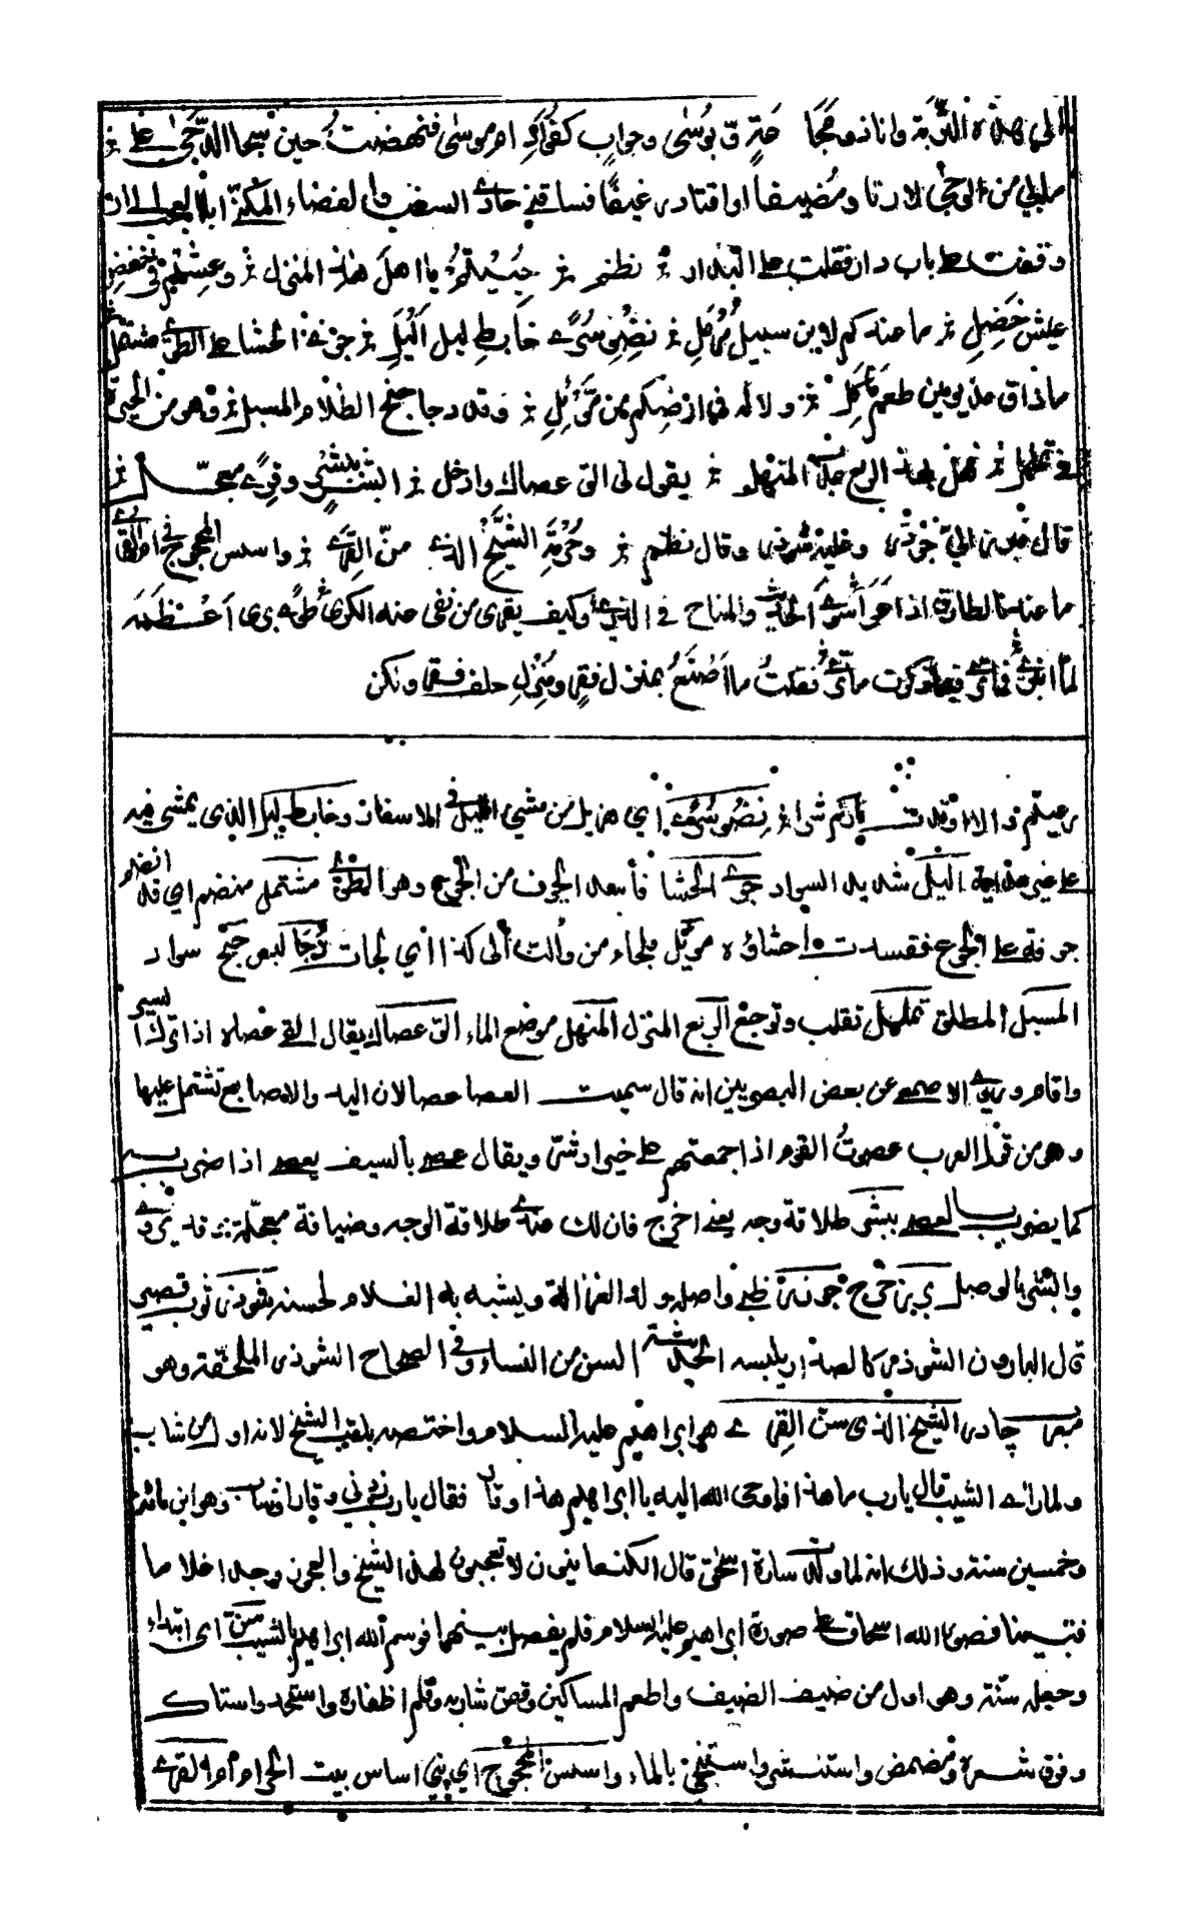 الى هذه التربة وانا ذو مجا حتر ق بوسى وجراب كفؤاد ام موسى فنهضت حين سجا الدجى على
ما بي من الوجى لارتاد مضيفا او اقتاد رغيفا فساقني حادي السغب والقضاء المكنى ابا العجب الى ان
وقفت على باب دار فقلت على البدار نظم حييتم يا اهل هذا المنزل وعشتم في خفض
عيش خضل ما عندكم لابن سبيل مرمل نضو سرى خابط ليل اليل جوى الحشا على الطوى مشتمل
ما ذاق مذ يومين طعم مأكل ولا له في ارضكم من موئل وقد دجا جنح الظلام المسبل وهو من الحيرة
في تململ فهل بهذا الربع عذب المنهل يقول لى الق عصاك وادخل وابشر ببشر وقرى معجل
قال فبرز الي جوذر وعليه شوذر وقال نظم وحرمة الشيخ الذي سن القرى واسس المحجوج في ام القرى
ما عندنا لطارق اذا عرا سوى الحديث والمناخ في الذرى وكيف يقرى من نفى عنه الكرى طوى برى اعظمه
لما انبرى فما ترى فيما ذكرت ما ترى فقلت ما اصنع بمنزل قفر ومنزل حلف فقر ولكن
نضو سرى اي هزيل من مشي الليل في الاسفار وخابط ليل الذي يمشي فيه
على غير هداية اليل شديد السواد جوى الحشا فاسد الجوف من الجوع وهو الطوى مشتمل منضم اي قد انضم
جوفه على الجوع ففسدت احشاؤه موئل ملجاء من والت الى كذا اي لجات دجا لبس جنح سواد
المسبل المطلق تململ تقلب وتوجع الربع المنزل المنهل موضع الماء الق عصاك يقال القى عصاه اذا ترك السير
واقام وروى الاصمعي عن بعض البصريين انه قال سميت العصا عصا لان اليد والاصابع تشتمل عليها
وهو من قول العرب عصوت القوم اذا جمعتهم على خير او شر ويقال عصي بالسيف يعصى اذا ضرب به
كما يضرب بالعصى ببشر طلاقة وجه يعني اخرج فان لك عندي طلاقة الوجه وضيافة معجلة وقد يروى
والبشر بالوصل برز خرج جوذر ظبي واصله ولد الغزالة ويشبه به الغلام لحسنه شوذر ثوب قصير
قال الباردون الشوذر كالصدار يلبسه الحديثة السن من النساء وفي الصحاح الشوذر الملحفة وهو
معرب چادر الشيخ الذى سن القرى هو ابراهيم عليه السلام واختص بلقب الشيخ لانه اول من شاب
ولما راى الشيب قال يا رب ما هذا فاوحى الله اليه يا ابراهيم هذا وقار فقال يا رب زدني وقارا فشاب وهو ابن مائة
وخمسين سنة وذلك انه لما ولدت سارة اسحق قال الكنعانيون لا تعجبون لهذا الشيخ والعجوز وجدا غلاما
فتبنينا فصور الله اسحاق على صورة ابراهيم عليه السلام فلم يفصل بينهما فوسم الله ابراهيم بالشيب سن اى ابتداء
وجعله سنة وهو اول من ضيف الضيف واطعم المساكين وقص شاربه وقلم اظفاره واستحد واستاك
وفرق شعره ومضمض واستنشق واستنجى بالماء واسس المحجوج اي بنى اساس بيت الحرام ام القرى